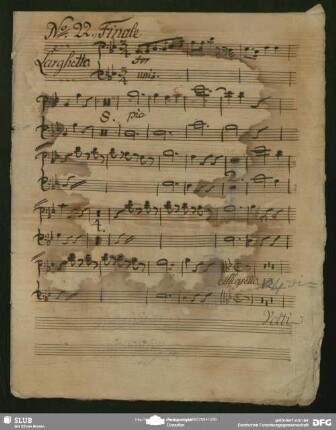 No. 22. Finale
Larghetto
for
unis.
8. pia
4.
Allegretto
Volti
SLUB
Wir führen Wissen.
gefördert von der
Deutschen Forschungsgemeinschaft
DFG